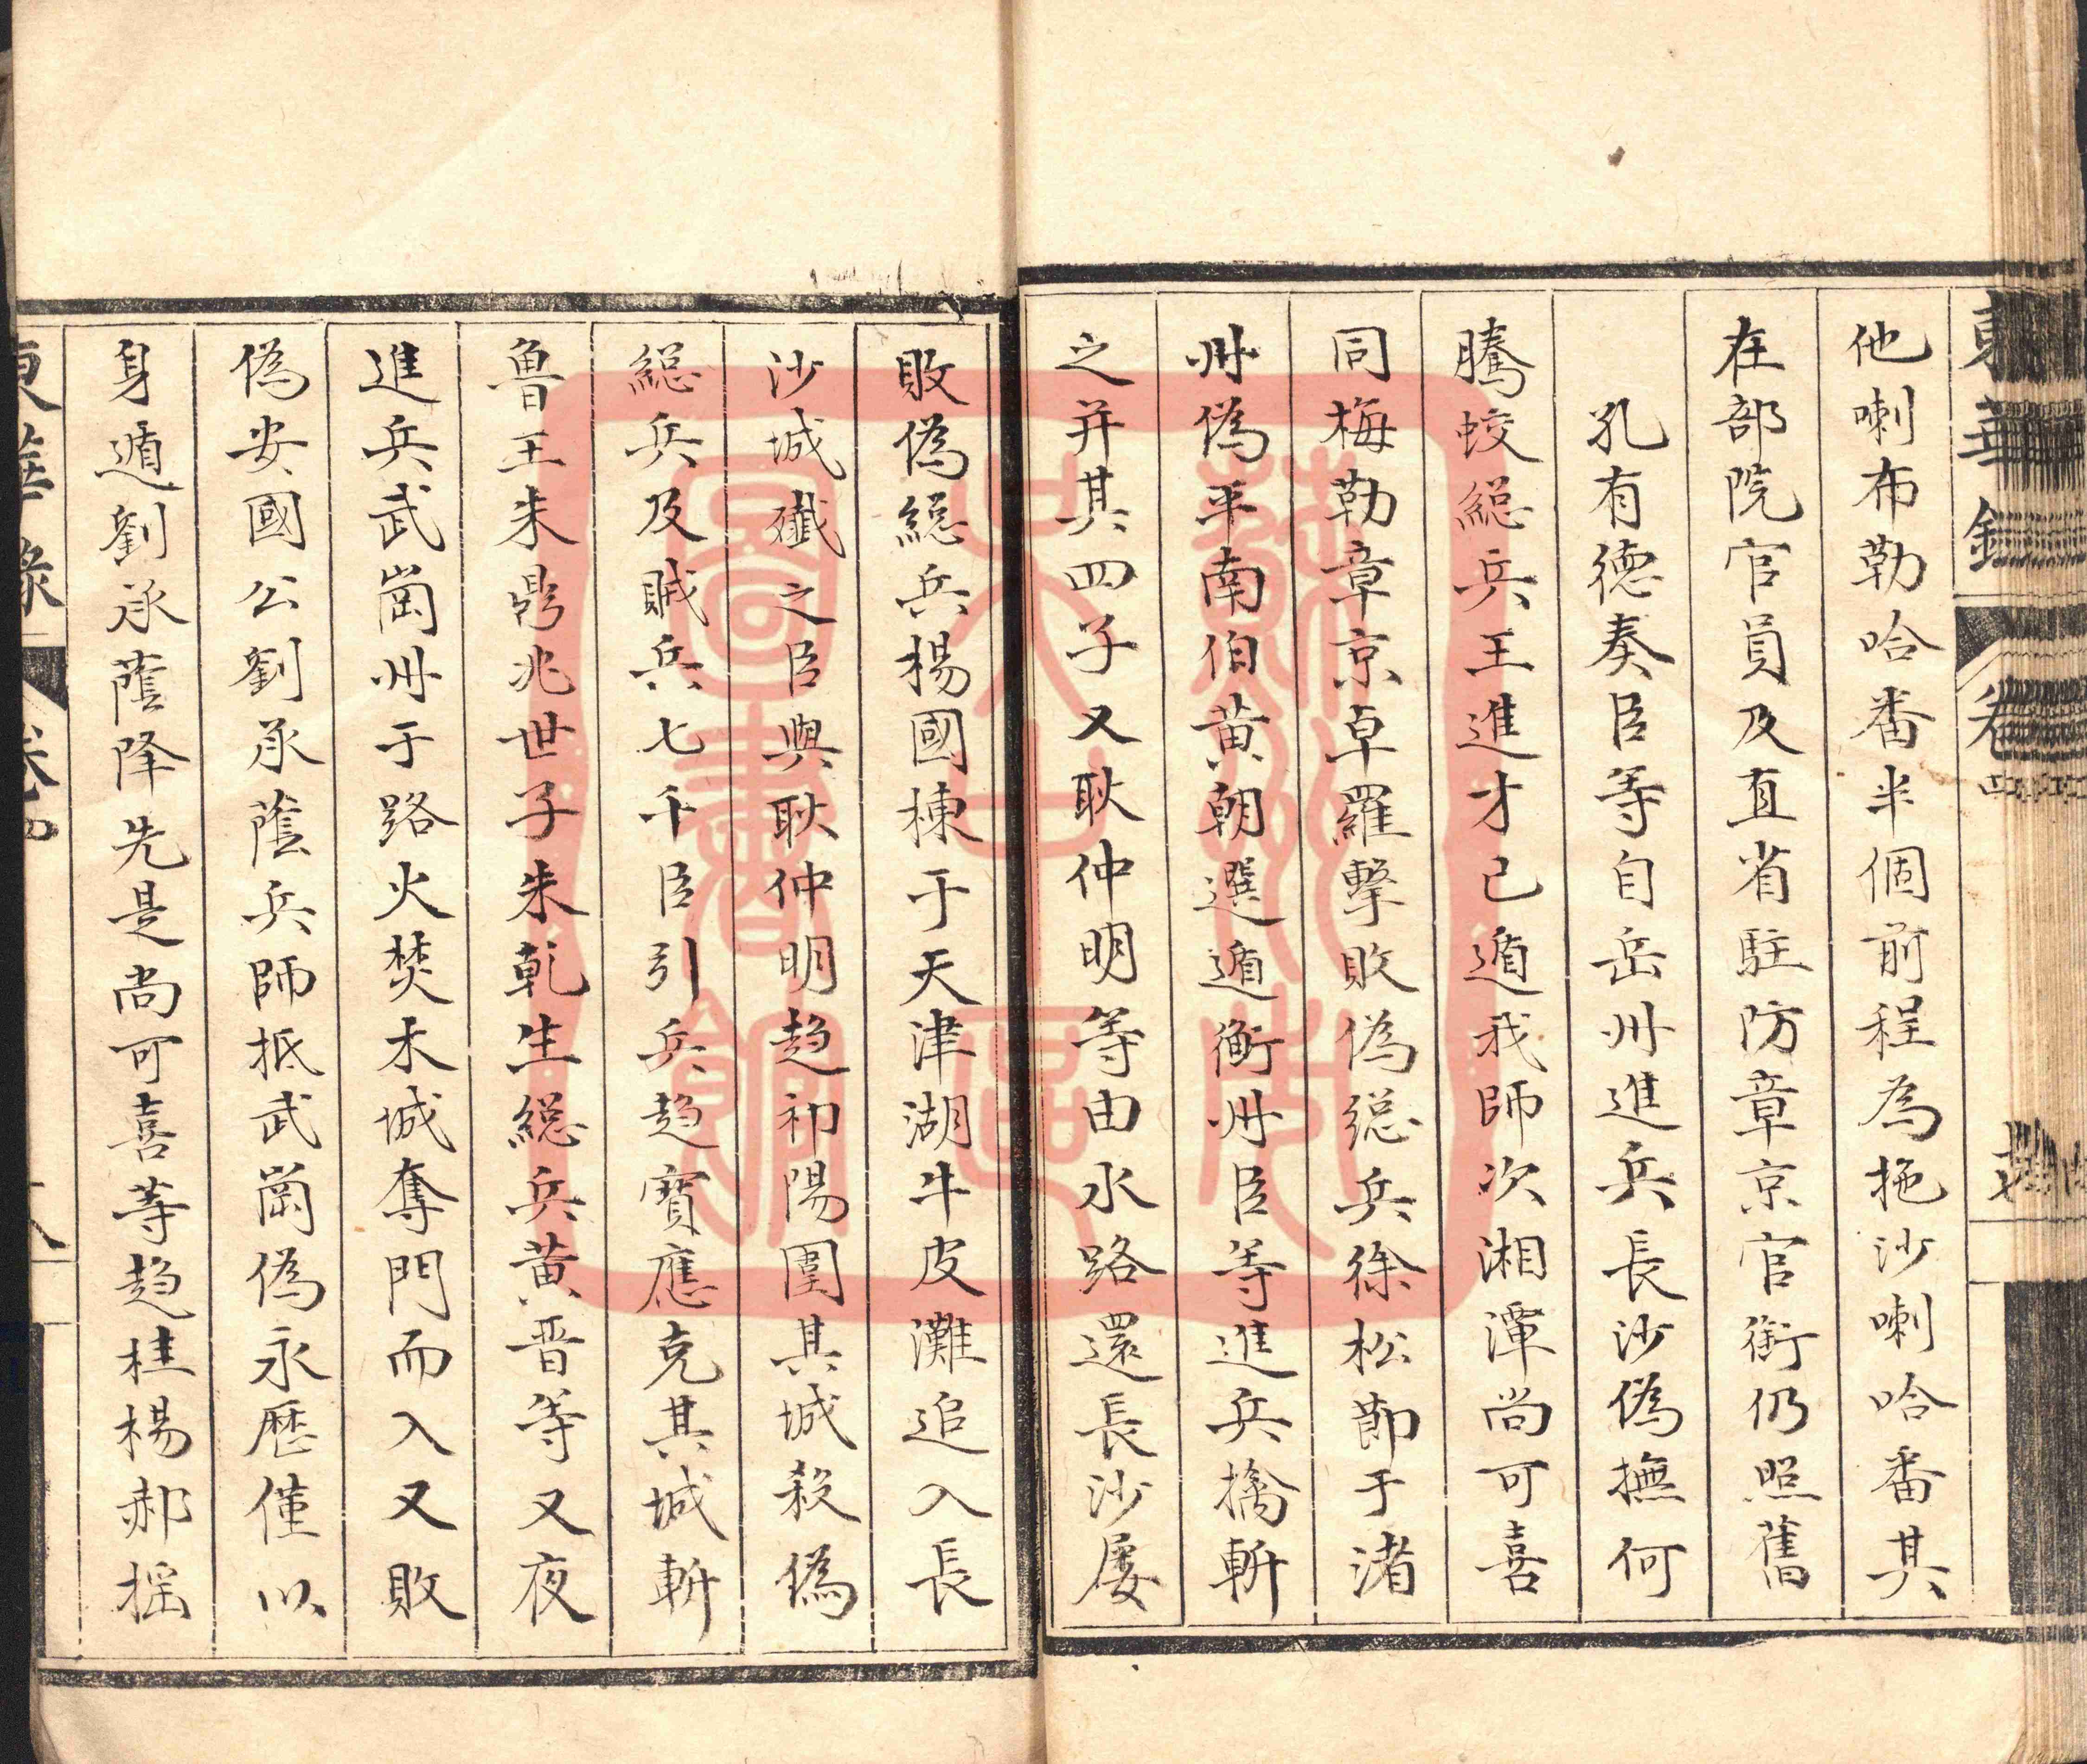 東華錄 卷四
他喇布勒哈番半個前程為拖沙喇哈番其
在部院官員及直省駐防章京官銜仍照舊
孔有德奏臣等自岳州進兵長沙偽撫何
騰蛟總兵王進才已遁我師次湘潭尚可喜
同梅勒章京卓羅擊敗偽總兵徐松節于渚
州偽平南伯黃朝選遁衡州臣等進兵擒斬
之并其四子又耿仲明等由水路還長沙屢
敗偽總兵楊國棟于天津湖牛皮灘追入長
沙城殲之臣與耿仲明趨祁陽圍其城殺偽
總兵及賊兵七千臣引兵趨寶應克其城斬
魯王朱鼎兆世子朱乾生總兵黃晋等又夜
進兵武崗州于路火焚木城奪門而入又敗
偽安國公劉承蔭兵師抵武崗偽永歷僅以
身遁劉承蔭降先是尚可喜等趨桂楊郝摇
東華錄 卷四
蘇州市
文化區
圖書館